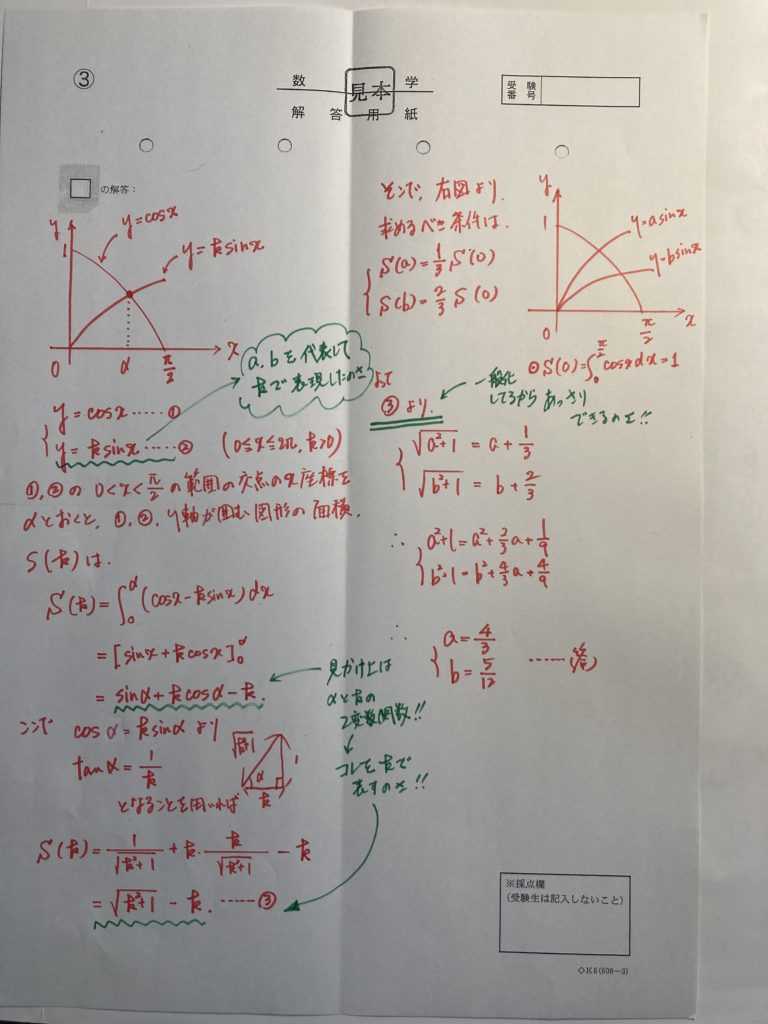 ③
数 学
見本
解 答 用 紙
受 験
番 号
の解答：
y
1
y=cosx
y=ksinx
0
α
π/2
x
a, bを代表して
kで表現したのさ
{ y=cosx ……①
y=ksinx ……② (0≦x≦2π, k>0)
①,②の 0<x<π/2 の範囲の交点のx座標を
αとおくと, ①, ②, y軸が囲む図形の面積,
S(k)は.
S(k)=∫₀^α (cosx-ksinx)dx
=[sinx+kcosx]₀^α
=sinα+kcosα-k.
見かけ上は
αとkの
2変数関数!!
コレをkで
表すのさ!!
ここで cosα=ksinαより
tanα=1/k
となることを用いれば
√k²+1
1
α
k
S(k)=1/√k²+1 + k・k/√k²+1 - k
=√k²+1 - k. ……③
そこで, 右図より,
求めるべき条件は.
{ S(a)=1/3 S(0)
S(b)=2/3 S(0)
y
1
y=asinx
y=bsinx
0
π/2
x
S(0)=∫₀^(π/2) cosxdx=1
よって
③より.
一般化
してるから あっさり
できるのさ!!
{ √a²+1 = a+1/3
√b²+1 = b+2/3
∴ { a²+1=a²+2/3a+1/9
b²+1=b²+4/3a+4/9
∴ { a=4/3
b=5/12 ……(答)
※採点欄
（受験生は記入しないこと）
◇K6(606—3)